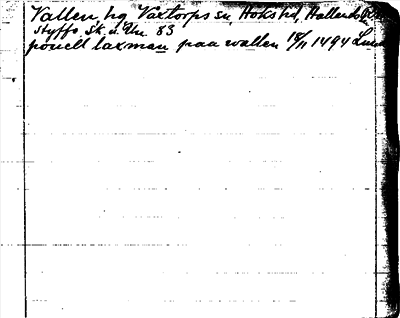 Vallen, hg Våxtorps sn, Höks hd, Hallands
Styffe, Sk. u. Un. 83
powell laxman paa wallen 18/11 1494